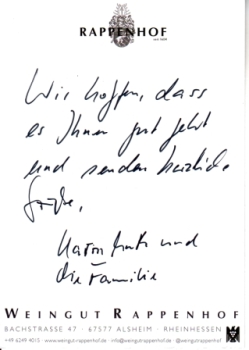 RAPPENHOF
Wir hoffen, dass
es Ihnen gut geht
und senden herzliche
Grüße,
und
die Familie
WEINGUT RAPPENHOF
BACHSTRASSE 47 · 67577 ALSHEIM · RHEINHESSEN
+49 6249 4015 · www.weingut-rappenhof.de · info@weingut-rappenhof.de · @weingutrappenhof